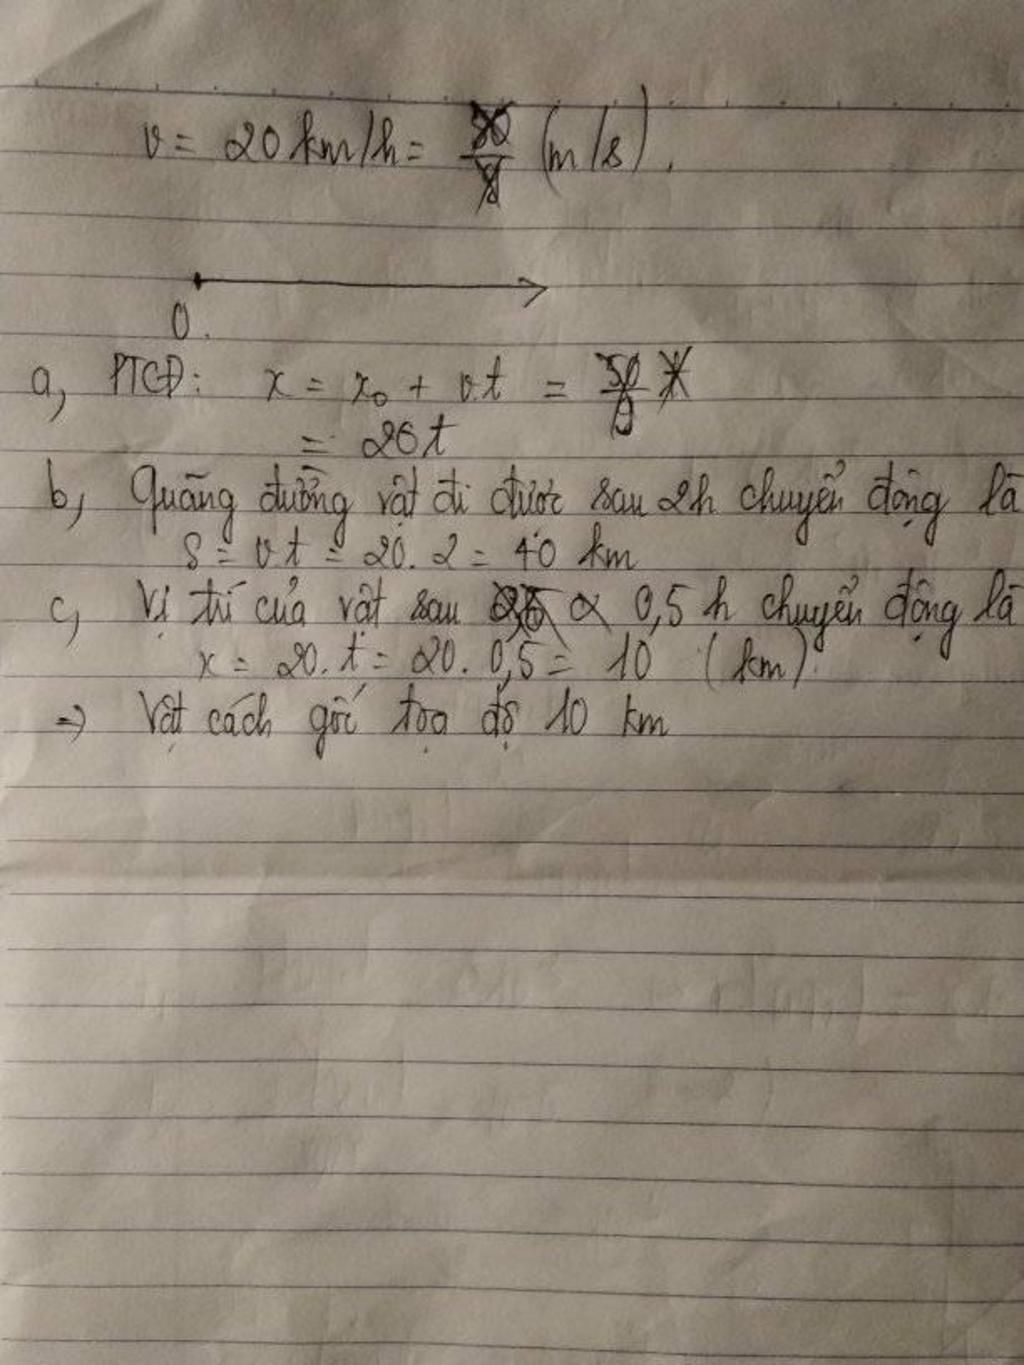 v = 20 km/h = 50/9 (m/s).
0.
a, PTCĐ: x = x₀ + v.t = 50/9 t
= 20t
b, Quãng đường vật đi được sau 2h chuyển động là
S = v t = 20. 2 = 40 km
c, Vị trí của vật sau 0,5 h chuyển động là
x = 20. t = 20. 0,5 = 10 (km).
=> Vật cách gốc tọa độ 10 km